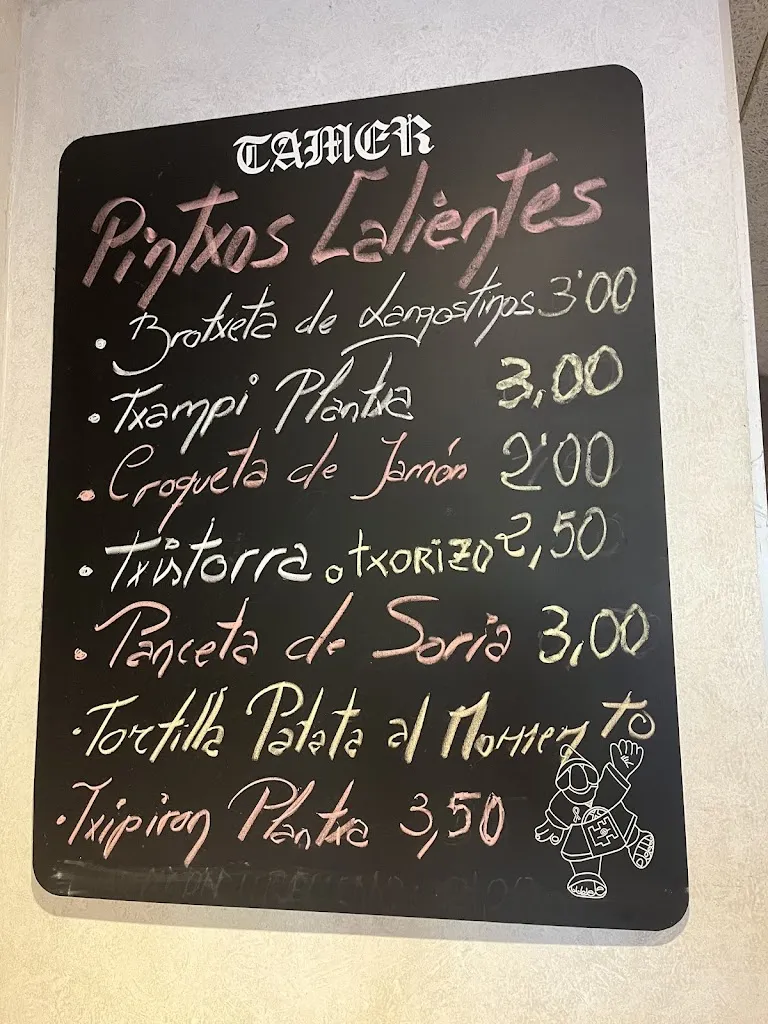 TAMER
Pintxos Calientes
• Brotxeta de Langostinos 3'00
• Txampi Plantxa 3,00
• Croqueta de Jamón 2'00
• Txistorra o TXORIZO 2,50
• Panceta de Soria 3,00
• Tortilla Patata al Momento
• Txipiron Plantxa 3,50